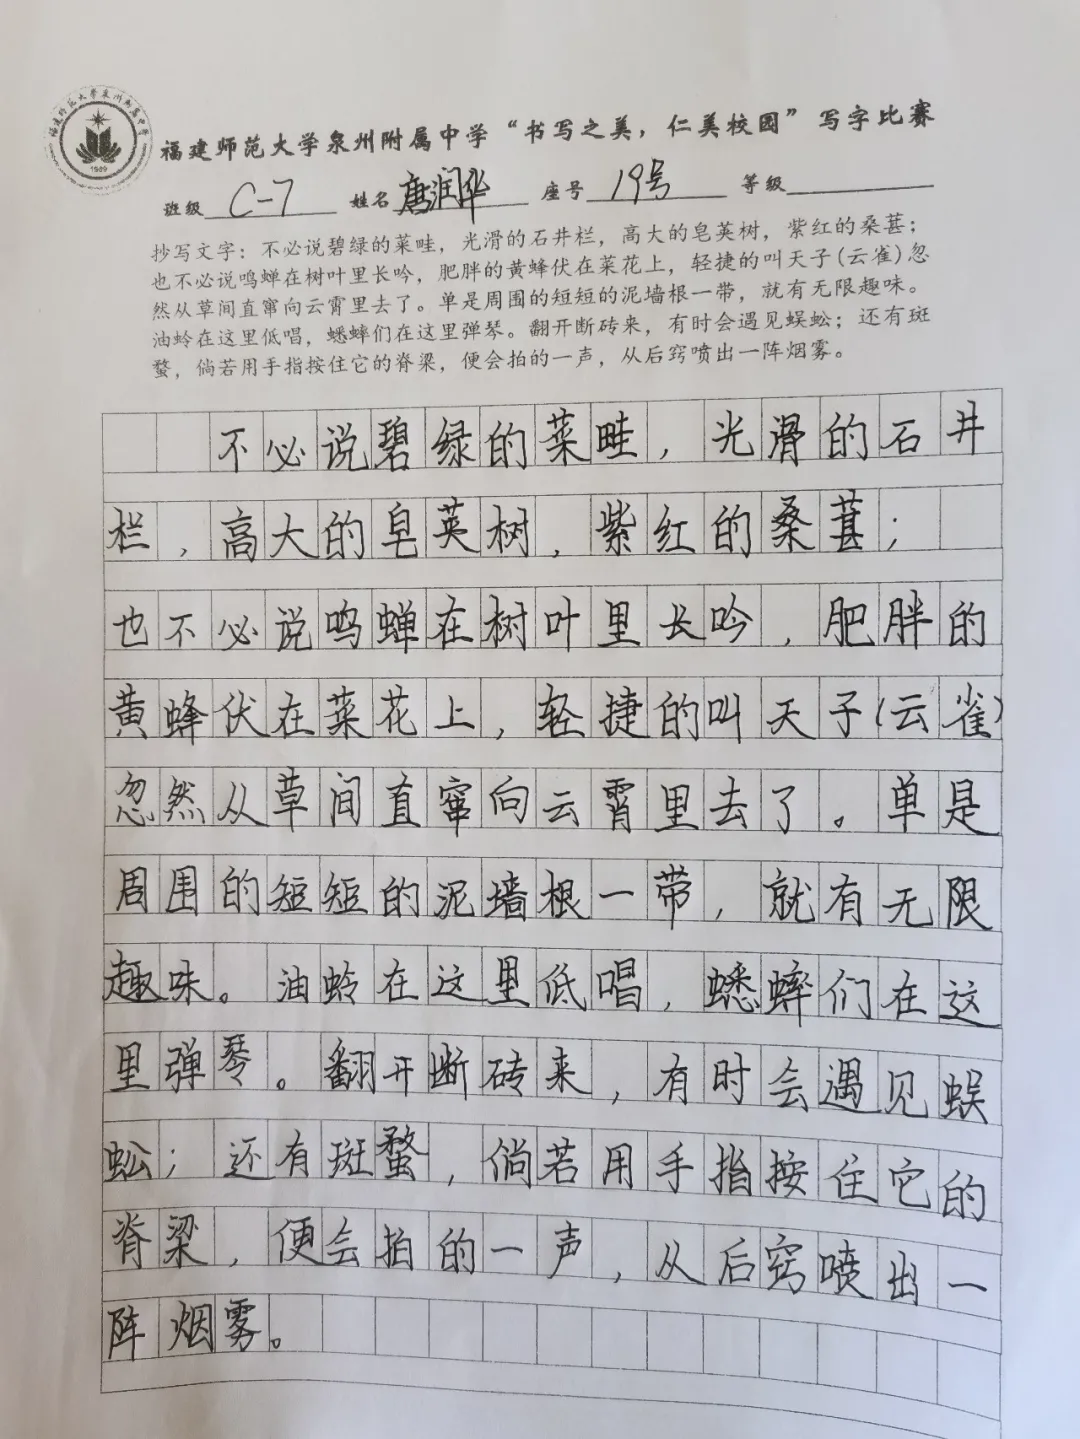 福建师范大学泉州附属中学
1989
福建师范大学泉州附属中学“书写之美，仁美校园”写字比赛
班级 C-7 姓名 唐润华 座号 19号 等级
抄写文字：不必说碧绿的菜畦，光滑的石井栏，高大的皂荚树，紫红的桑葚；
也不必说鸣蝉在树叶里长吟，肥胖的黄蜂伏在菜花上，轻捷的叫天子(云雀)忽
然从草间直窜向云霄里去了。单是周围的短短的泥墙根一带，就有无限趣味。
油蛉在这里低唱，蟋蟀们在这里弹琴。翻开断砖来，有时会遇见蜈蚣；还有斑
蝥，倘若用手指按住它的脊梁，便会拍的一声，从后窍喷出一阵烟雾。
不必说碧绿的菜畦，光滑的石井
栏，高大的皂英树，紫红的桑葚；
也不必说鸣蝉在树叶里长吟，肥胖的
黄蜂伏在菜花上，轻捷的叫天子(云雀)
忽然从草间直窜向云霄里去了。单是
周围的短短的泥墙根一带，就有无限
趣味。油蛉在这里低唱，蟋蟀们在这
里弹琴。翻开断砖来，有时会遇见蜈
蚣；还有斑蝥，倘若用手指按住它的
脊梁，便会拍的一声，从后窍喷出一
阵烟雾。